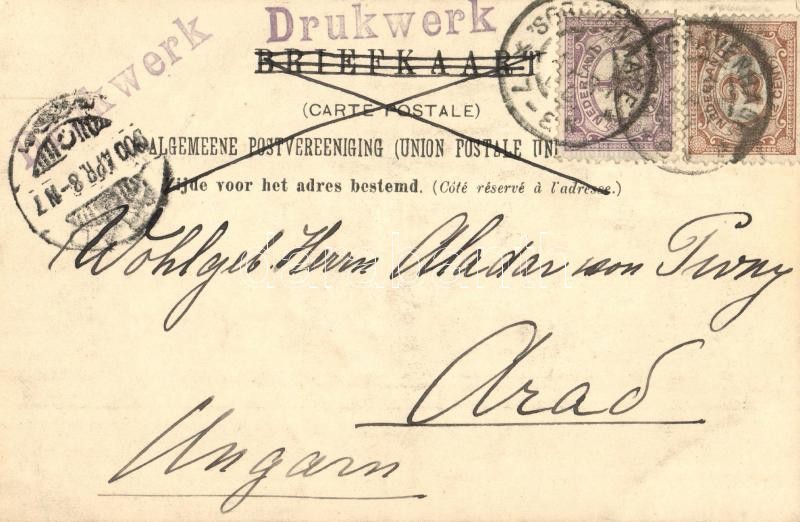 Drukwerk
Drukwerk
BRIEFKAART
(CARTE POSTALE)
ALGEMEENE POSTVEREENIGING (UNION POSTALE UNI
Zijde voor het adres bestemd. (Côté réservé à l'adresse.)
900 APR. 8-N7
Wohlgeb. Herrn Aladar von
Arad
Ungarn